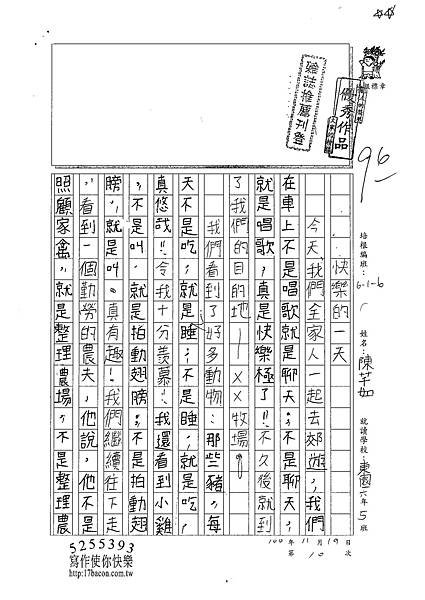 雜誌推薦刊登
優秀作品
96
培根編班：6-1-6
姓名：陳芊如
就讀學校：東園六年5班
100年11月19日
第10次
快樂的一天
今天，我們全家人一起去郊遊，我們
在車上不是唱歌就是聊天；不是聊天，
就是唱歌，真是快樂極了！不久後就到
了我們的目的地——××牧場。
我們看到了好多動物：那些豬，每
天不是吃，就是睡；不是睡，就是吃，
真悠哉！令我十分羨慕！我還看到小雞
，不是叫，就是拍動翅膀；不是拍動翅
膀，就是叫。真有趣！我們繼續往下走
，看到一個勤勞的農夫，他說，他不是
照顧家禽，就是整理農場；不是整理農
5255393
寫作使你快樂
http://17bacon.com.tw